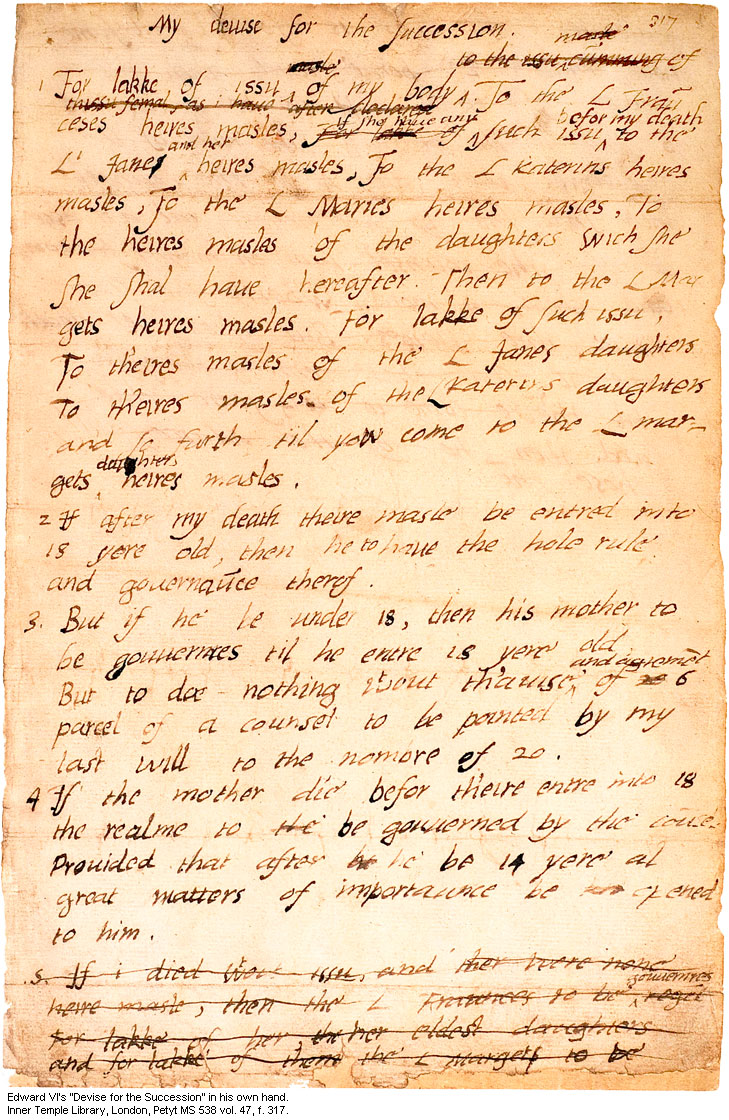 317
My deuise for the Succession.
masle
to the issu cumming of
1 For lakke of issu masle of my body. To the L Frau
thissu femal, as i haue after declared
if she haue any
befor my death
ceses heires masles, for lakke of such issu to the
and her
L' Janes heires masles, To the L Katerins heires
masles, To the L Maries heires masles, To
the heires masles of the daughters wich she
she shal haue hereafter. Then to the L Mar
gets heires masles. For lakke of such issu,
To th'eires masles of the L Janes daughters
To th'eires masles of the L Katerins daughters
and so furth til yow come to the L mar-
daughters
gets heires masles.
2 If after my death theire masle be entred into
18 yere old, then he to haue the hole rule
and gouernauce therof.
3. But if he be under 18, then his mother to
be gouuernres til he entre 18 yere old
and agremēt
But to doe nothing wtout th'auise of 6
parcel of a counsel to be pointed by my
last will to the nomore of 20.
4 If the mother die befor th'eire entre into 18
the realme to the be gouuerned by the counsel
Prouided that after he be 14 yere al
great matters of importaunce be opened
to him.
5. If i died wtout issu, and ther were none
gouuernres
heire masle, then the L Fraunces to be reget
For lakke of her, the her eldest daughters
and for lakke of them the L Margets to be
Edward VI's "Devise for the Succession" in his own hand.
Inner Temple Library, London, Petyt MS 538 vol. 47, f. 317.